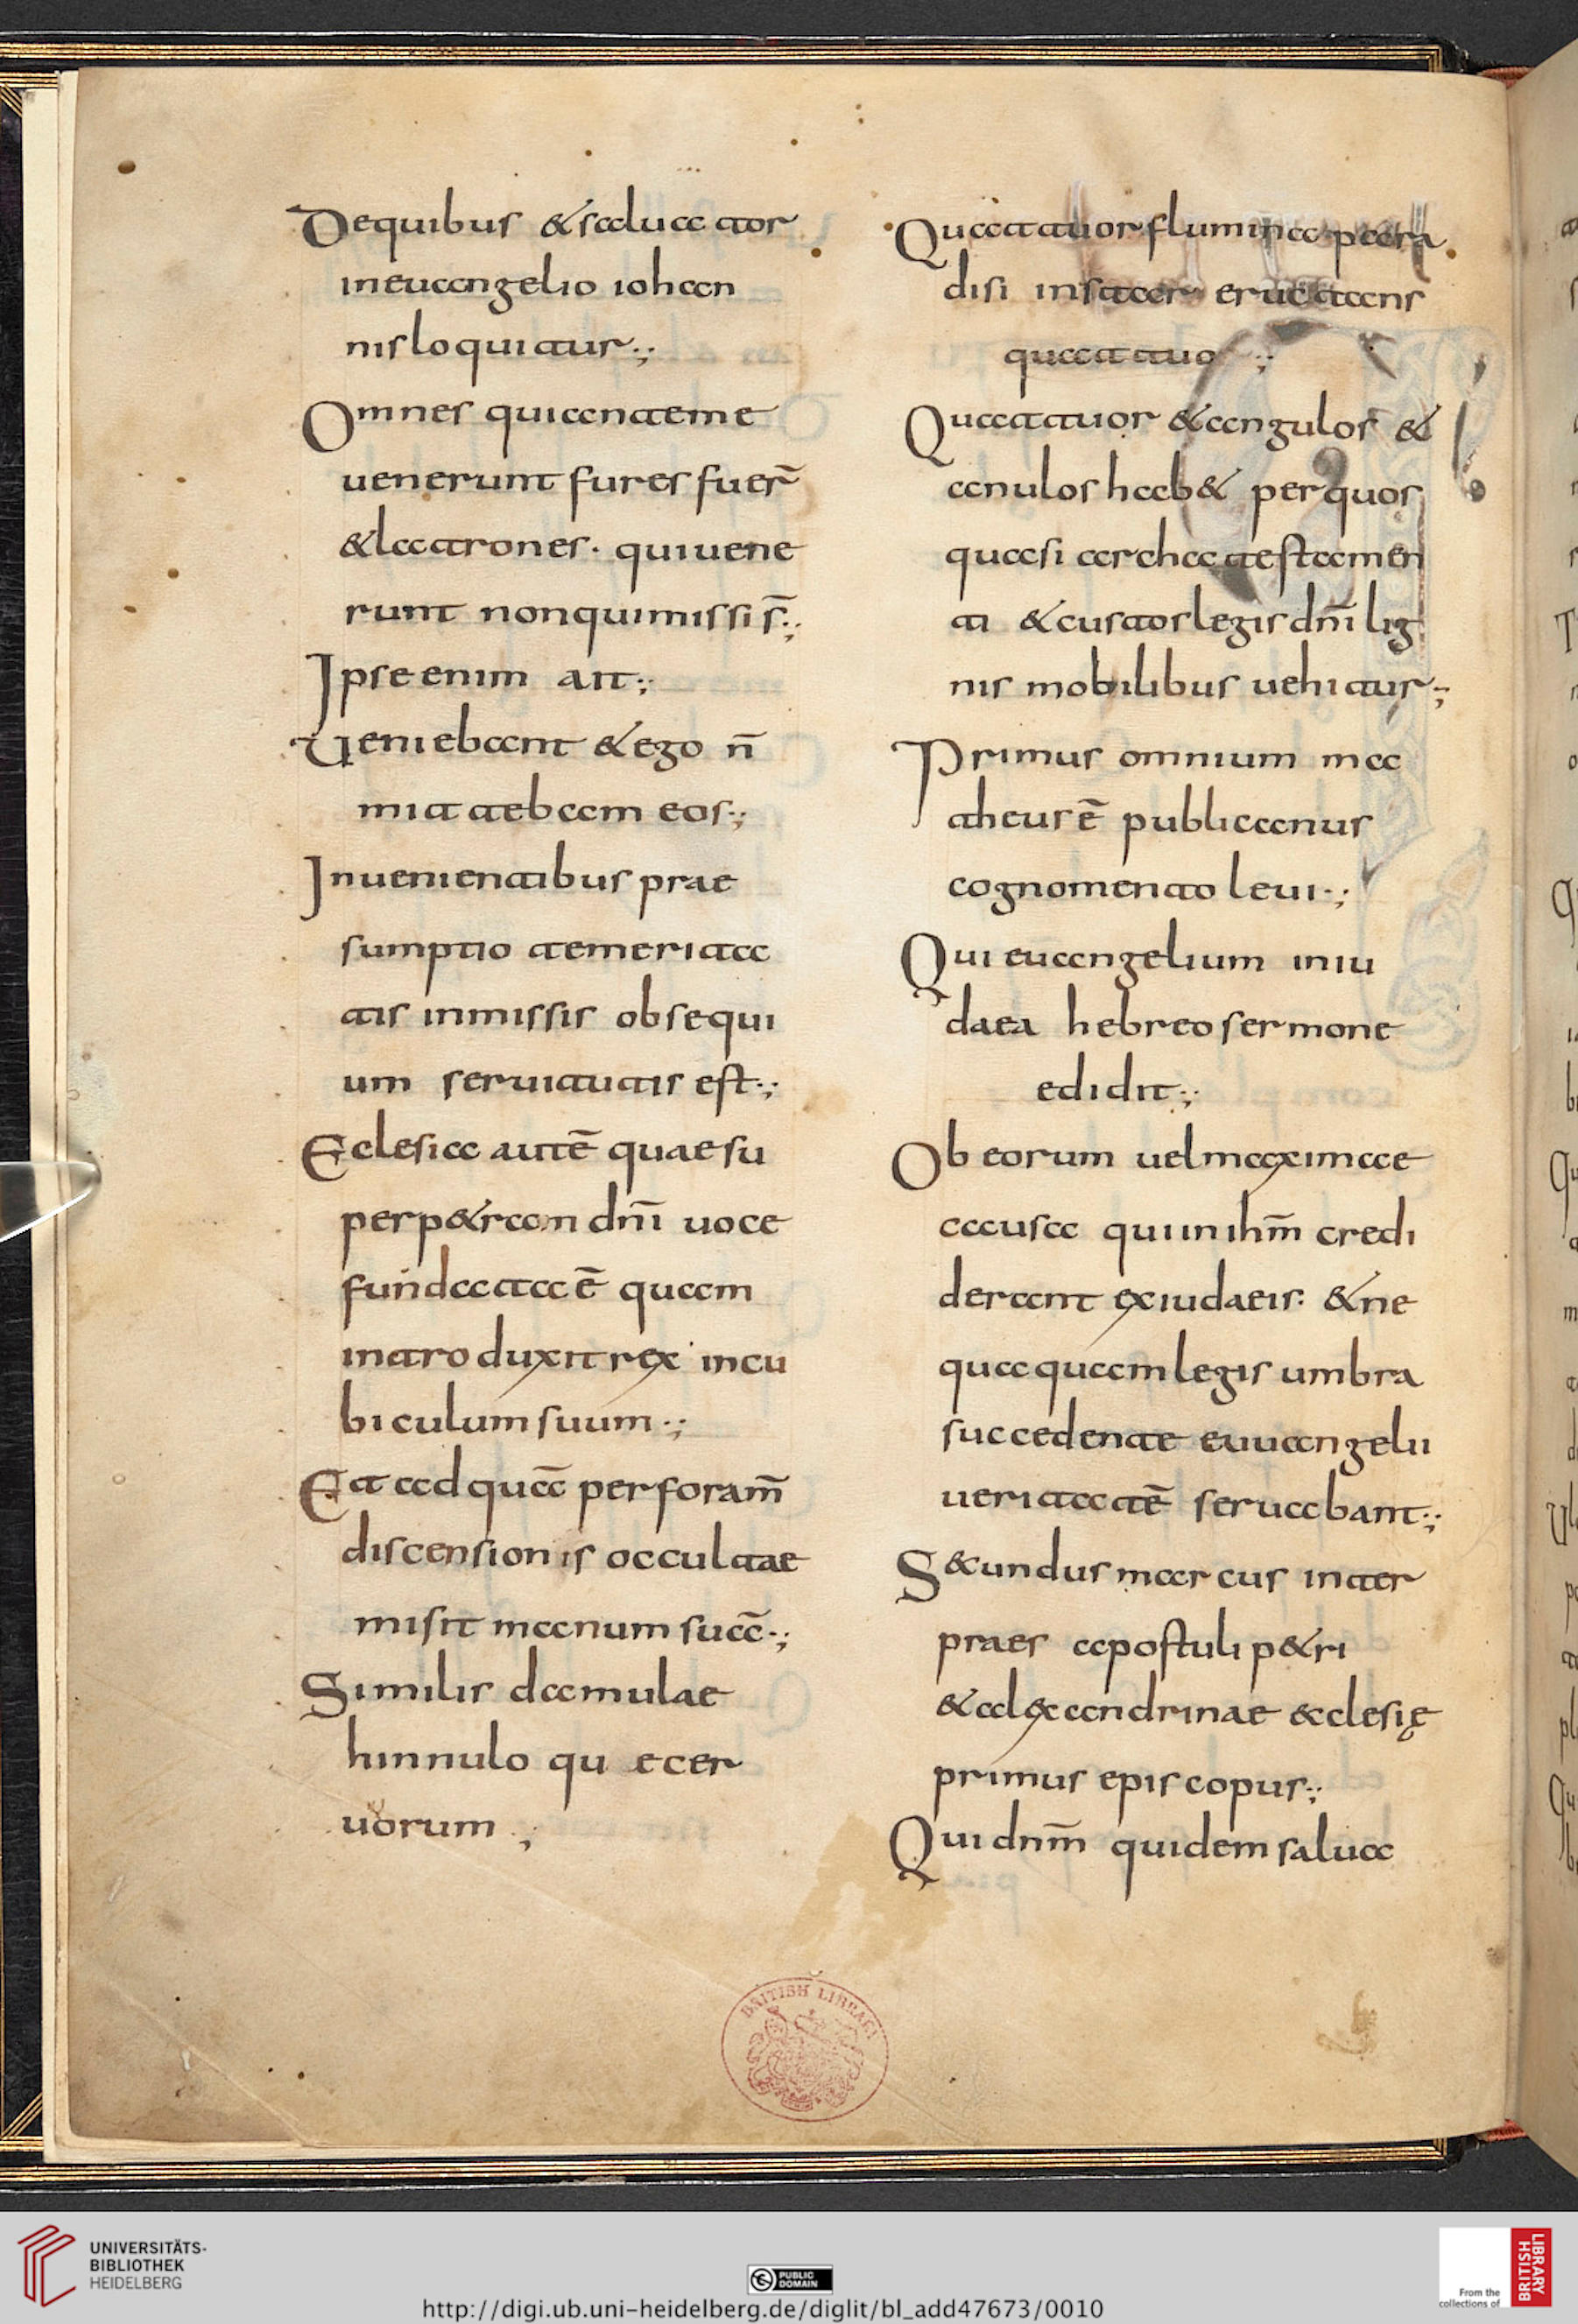 Dequibus & saluator
ineuangelio iohan
nis loquitur·;
Omnes quianteme
uenerunt fures fuer̄
&latrones· quiuene
runt nonquimissi s̄·;
Ipse enim ait·;
Ueniebant &ego n̄
mittebam eos·;
Inuenientibus prae
sumptio temerita
tis inmissis obsequi
um seruitutis est·;
Eclesia autē quaesu
perp&ram dn̄i uoce
fundata ē quam
introduxit rex incu
biculum suum·;
Et ad quā perforam̄
discensionis occultae
misit manum suā·;
Similis damulae
hinnulo qu ecer
uorum ·;
Quattuor flumina para
disi instar eructans
quattuor ·;
Quattuor &angulos &
anulos hab& perquos
quasi archa testamen
ti &custos legis dn̄i lig
nis mobilibus uehitur·;
Primus omnium ma
theus ē publicanus
cognomento leui·;
Qui euangelium iniu
daea hebreo sermone
edidit·;
Ob eorum uel maximae
causa qui in ihm̄ credi
derant exiudaeis· &ne
quaquam legis umbra
succedente euuangelii
ueritatē seruabant·;
S&cundus marcus inter
praes apostuli p&ri
&alexandrinae &clesię
primus episcopus·;
Qui dnm̄ quidem salua
BRITISH LIBRARY
UNIVERSITÄTS-
BIBLIOTHEK
HEIDELBERG
PUBLIC
DOMAIN
http://digi.ub.uni-heidelberg.de/diglit/bl_add47673/0010
From the
collections of
BRITISH
LIBRARY